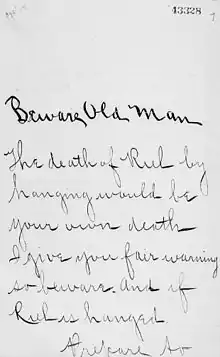 43328
Beware Old Man
The death of Riel by
hanging would be
your own death
I give you fair warning
so beware. And if
Riel is hanged
Prepare to